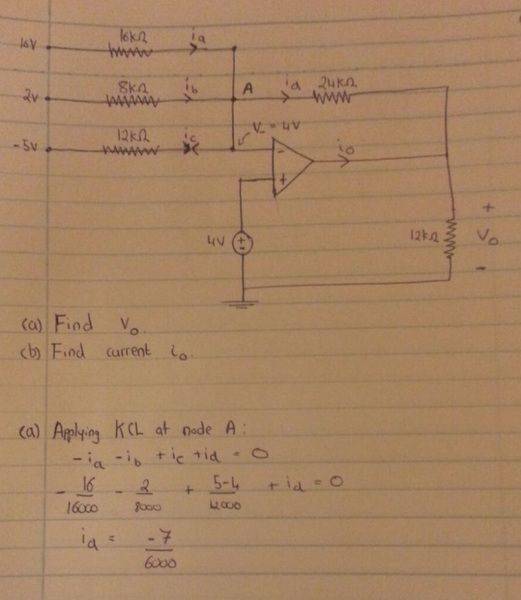 16V 16kΩ ia
2V 8kΩ ib A id 24kΩ
-5V 12kΩ ic V_ = 4V
- io
+
4V + - 12kΩ + Vo -
(a) Find Vo.
(b) Find current io.
(a) Applying KCL at node A:
-ia -ib +ic +id = 0
- 16/16000 - 2/8000 + 5-4/12000 + id = 0
id = -7/6000